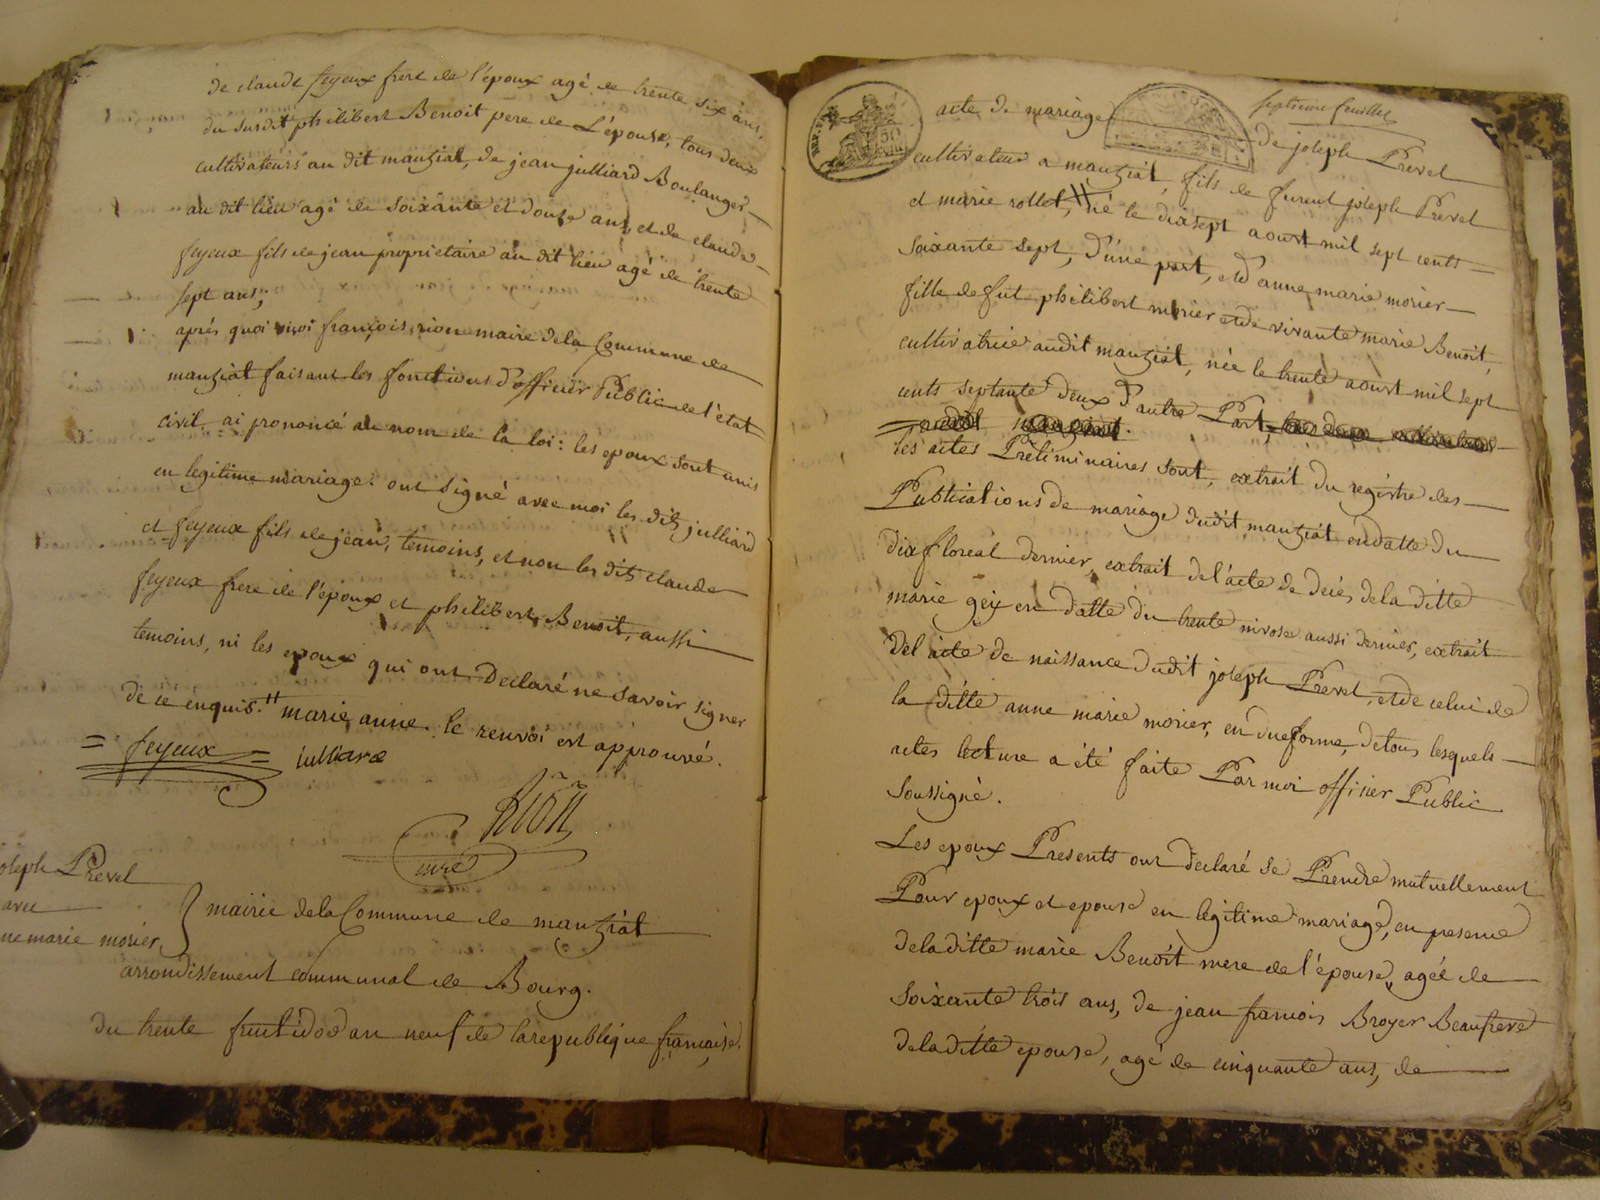 de claude feyeux frere de l'époux agé de trente six ans,
du susdit philibert Benoit pere de L'épouse, tous deux
cultivateurs au dit manziat, de jean julliard Boulanger
au dit lieu agé de soixante et douze ans, et de claude
feyeux fils de jean proprietaire au dit lieu agé de trente
sept ans;
aprés quoi moi françois rion maire de la Commune de
manziat faisant les fonctions d'officier Public de l'état
civil, ai prononcé au nom de la loi: les epoux sont unis
en legitime mariage. ont signé avec moi les dits julliard
et feyeux fils de jean, temoins, et non les dits claude
feyeux frere de l'époux et philibert Benoit, aussi
temoins, ni les epoux qui ont Declaré ne savoir signer
de ce enquis. # marie anne. le renvoi est approuvé.
= feyeux = julliard
Rion
mre
joseph Prevel
avec
ne marie morier
mairie de la Commune de manziat
arrondissement communal de Bourg.
Du trente fructidor an neuf de la republique française.
REP. FRA.
50
septieme feuillet
acte de mariage
de joseph Prevel
cultivateur a manziat, fils de furent joseph Prevel
et marie rollet, # né le dix sept aoust mil sept cents
soixante sept, d'une part, et d'anne marie morier
fille de fut philibert morier et de vivante marie Benoit,
cultivatrice audit manziat, née le trente aoust mil sept
cents septante deux d'autre Part,
les actes Préliminaires sont, extrait du registre des
Publications de mariage dudit manziat en datte du
dix floreal dernier, extrait de l'acte de decés de la ditte
marie geix en datte du trente nivose aussi dernier, extrait
del acte de naissance dudit joseph Prevel, et de celui de
la ditte anne marie morier, en due forme, de tous lesquels
actes lecture a été faite Par moi officier Public
soussigné.
Les epoux Presents ont declaré se Prendre mutuellement
Pour epoux et epouse en legitime mariage, en presence
de la ditte marie Benoit mere de l'épouse, agée de
soixante trois ans, de jean francois Broyer Beaufrere
de la ditte epouse, agé de cinquante ans, de